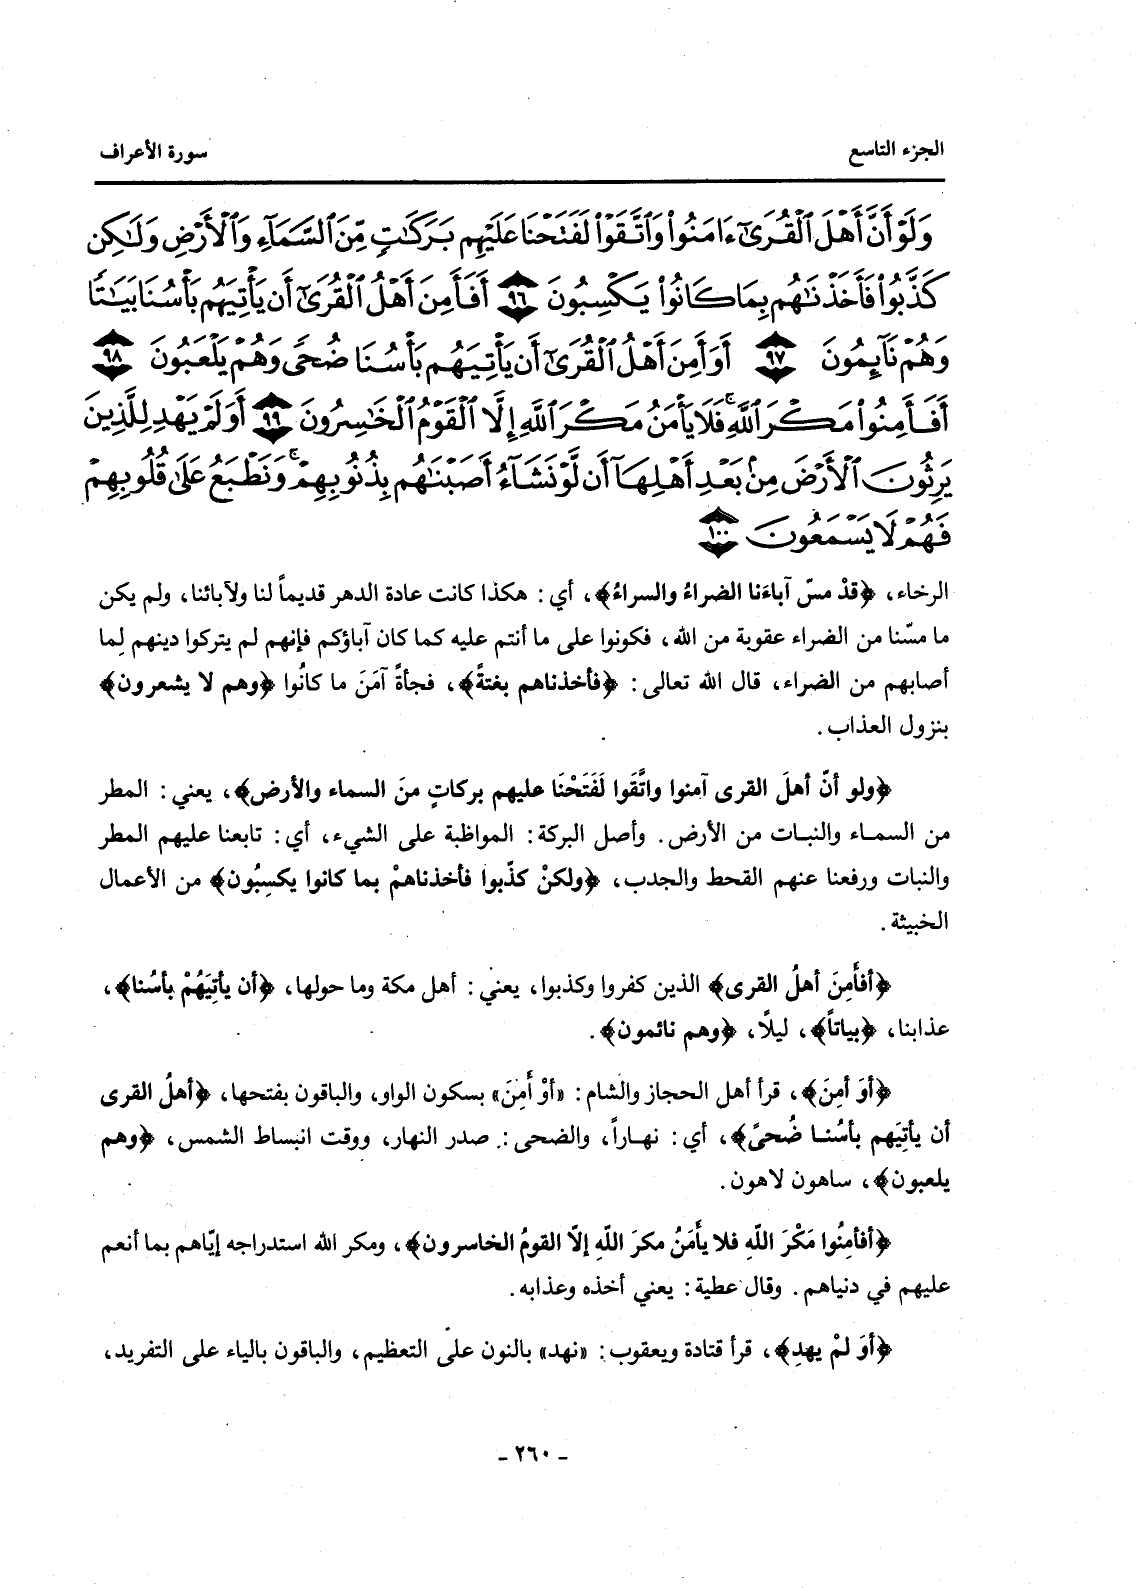 الجزء التاسع
سورة الأعراف
وَلَوْ أَنَّ أَهْلَ ٱلْقُرَىٰٓ ءَامَنُوا۟ وَٱتَّقَوْا۟ لَفَتَحْنَا عَلَيْهِم بَرَكَٰتٍ مِّنَ ٱلسَّمَآءِ وَٱلْأَرْضِ وَلَٰكِن
كَذَّبُوا۟ فَأَخَذْنَٰهُم بِمَا كَانُوا۟ يَكْسِبُونَ ٩٦ أَفَأَمِنَ أَهْلُ ٱلْقُرَىٰٓ أَن يَأْتِيَهُم بَأْسُنَا بَيَٰتًا
وَهُمْ نَآئِمُونَ ٩٧ أَوَأَمِنَ أَهْلُ ٱلْقُرَىٰٓ أَن يَأْتِيَهُم بَأْسُنَا ضُحًى وَهُمْ يَلْعَبُونَ ٩٨
أَفَأَمِنُوا۟ مَكْرَ ٱللَّهِ ۚ فَلَا يَأْمَنُ مَكْرَ ٱللَّهِ إِلَّا ٱلْقَوْمُ ٱلْخَٰسِرُونَ ٩٩ أَوَلَمْ يَهْدِ لِلَّذِينَ
يَرِثُونَ ٱلْأَرْضَ مِنۢ بَعْدِ أَهْلِهَآ أَن لَّوْ نَشَآءُ أَصَبْنَٰهُم بِذُنُوبِهِمْ ۚ وَنَطْبَعُ عَلَىٰ قُلُوبِهِمْ
فَهُمْ لَا يَسْمَعُونَ ١٠٠
الرخاء، ﴿قدْ مسّ آباءَنا الضراءُ والسراءُ﴾، أي: هكذا كانت عادة الدهر قديماً لنا ولآبائنا، ولم يكن
ما مسّنا من الضراء عقوبة من الله، فكونوا على ما أنتم عليه كما كان آباؤكم فإنهم لم يتركوا دينهم لِما
أصابهم من الضراء، قال الله تعالى: ﴿فأخذناهم بغتةً﴾، فجأةً آمَنَ ما كانُوا ﴿وهم لا يشعرون﴾
بنزول العذاب.
﴿ولو أنّ أهلَ القرى آمنوا واتَّقَوا لَفَتَحْنَا عليهم بركاتٍ منَ السماء والأرض﴾، يعني: المطر
من السماء والنبات من الأرض. وأصل البركة: المواظبة على الشيء، أي: تابعنا عليهم المطر
والنبات ورفعنا عنهم القحط والجدب، ﴿ولكنْ كذّبوا فأخذناهمْ بما كانوا يكسِبُون﴾ من الأعمال
الخبيثة.
﴿أفأَمِنَ أهلُ القرى﴾ الذين كفروا وكذبوا، يعني: أهل مكة وما حولها، ﴿أن يأتيَهُمْ بأسُنا﴾،
عذابنا، ﴿بياتاً﴾، ليلًا، ﴿وهم نائمون﴾.
﴿أوَ أمِنَ﴾، قرأ أهل الحجاز والشام: «أوْ أَمِنَ» بسكون الواو، والباقون بفتحها، ﴿أهلُ القرى
أن يأتِيَهم بأسُنا ضُحىً﴾، أي: نهاراً، والضحى: صدر النهار، ووقت انبساط الشمس، ﴿وهم
يلعبون﴾، ساهون لاهون.
﴿أفأمِنُوا مَكْرَ اللّهِ فلا يأمَنُ مكرَ اللّهِ إلّا القومُ الخاسرون﴾، ومكر الله استدراجه إيّاهم بما أنعم
عليهم في دنياهم. وقال عطية: يعني أخذه وعذابه.
﴿أوَ لمْ يهدِ﴾، قرأ قتادة ويعقوب: «نهد» بالنون على التعظيم، والباقون بالياء على التفريد،
- ٢٦٠ -